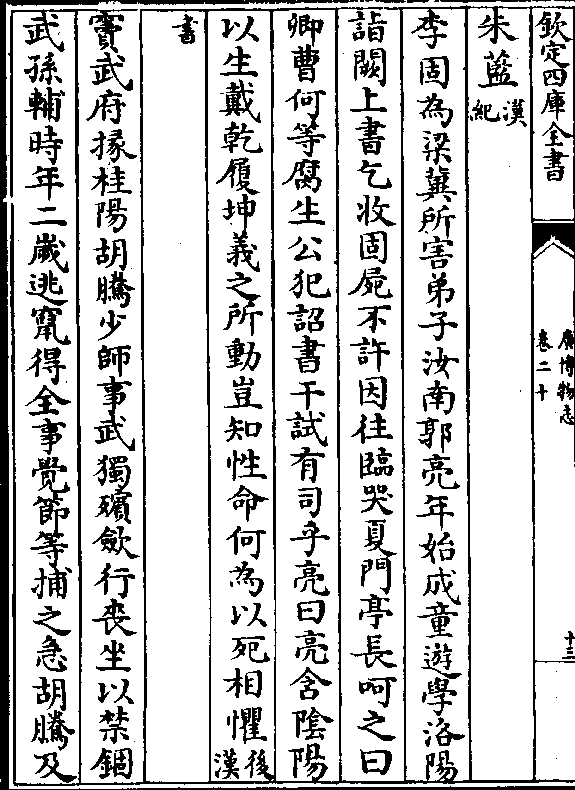 欽定四庫全書
廣博物志
卷二十
十三
朱藍漢紀
李固為梁冀所害弟子汝南郭亮年始成童遊學洛陽
詣闕上書乞收固屍不許因往臨哭夏門亭長呵之曰
卿曹何等腐生公犯詔書干試有司乎亮曰亮含陰陽
以生戴乾履坤義之所動豈知性命何為以死相懼後漢
書
竇武府掾桂陽胡騰少師事武獨殯歛行喪坐以禁錮
武孫輔時年二歲逃竄得全事覺節等捕之急胡騰及